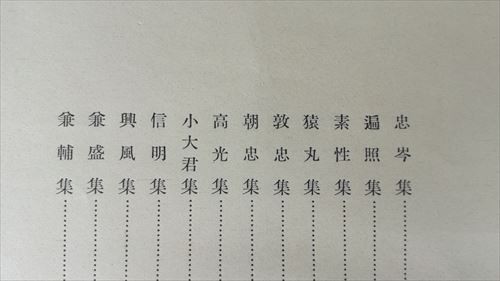 忠岑集
遍照集
素性集
猿丸集
敦忠集
朝忠集
高光集
小大君集
信明集
興風集
兼盛集
兼輔集